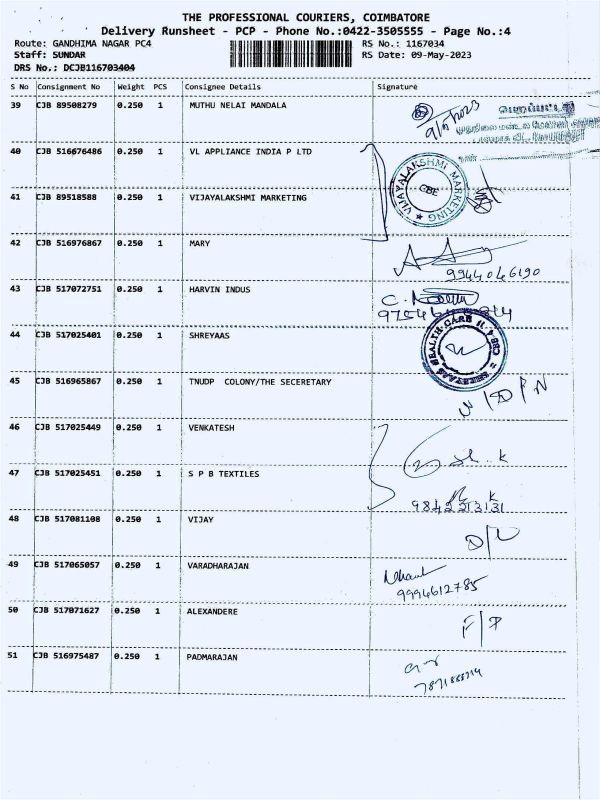 THE PROFESSIONAL COURIERS, COIMBATORE
Delivery Runsheet - PCP - Phone No.:0422-3505555 - Page No.:4
Route: GANDHIMA NAGAR PC4 RS No.: 1167034
Staff: SUNDAR RS Date: 09-May-2023
DRS No.: DCJB116703404
S No Consignment No Weight PCS Consignee Details Signature
39 CJB 89508279 0.250 1 MUTHU NELAI MANDALA
9/5/2023
40 CJB 516676486 0.250 1 VL APPLIANCE INDIA P LTD
VIJAYALAKSHMI MARKETING
CBE
41 CJB 89518588 0.250 1 VIJAYALAKSHMI MARKETING
42 CJB 516976867 0.250 1 MARY
9944046190
43 CJB 517072751 0.250 1 HARVIN INDUS
44 CJB 517025401 0.250 1 SHREYAAS
SHREYAAS HEALTH CARE
45 CJB 516965867 0.250 1 TNUDP COLONY/THE SECERETARY
46 CJB 517025449 0.250 1 VENKATESH
47 CJB 517025451 0.250 1 S P B TEXTILES
48 CJB 517081108 0.250 1 VIJAY
D/L
49 CJB 517065057 0.250 1 VARADHARAJAN
9994612785
50 CJB 517071627 0.250 1 ALEXANDERE
51 CJB 516975487 0.250 1 PADMARAJAN